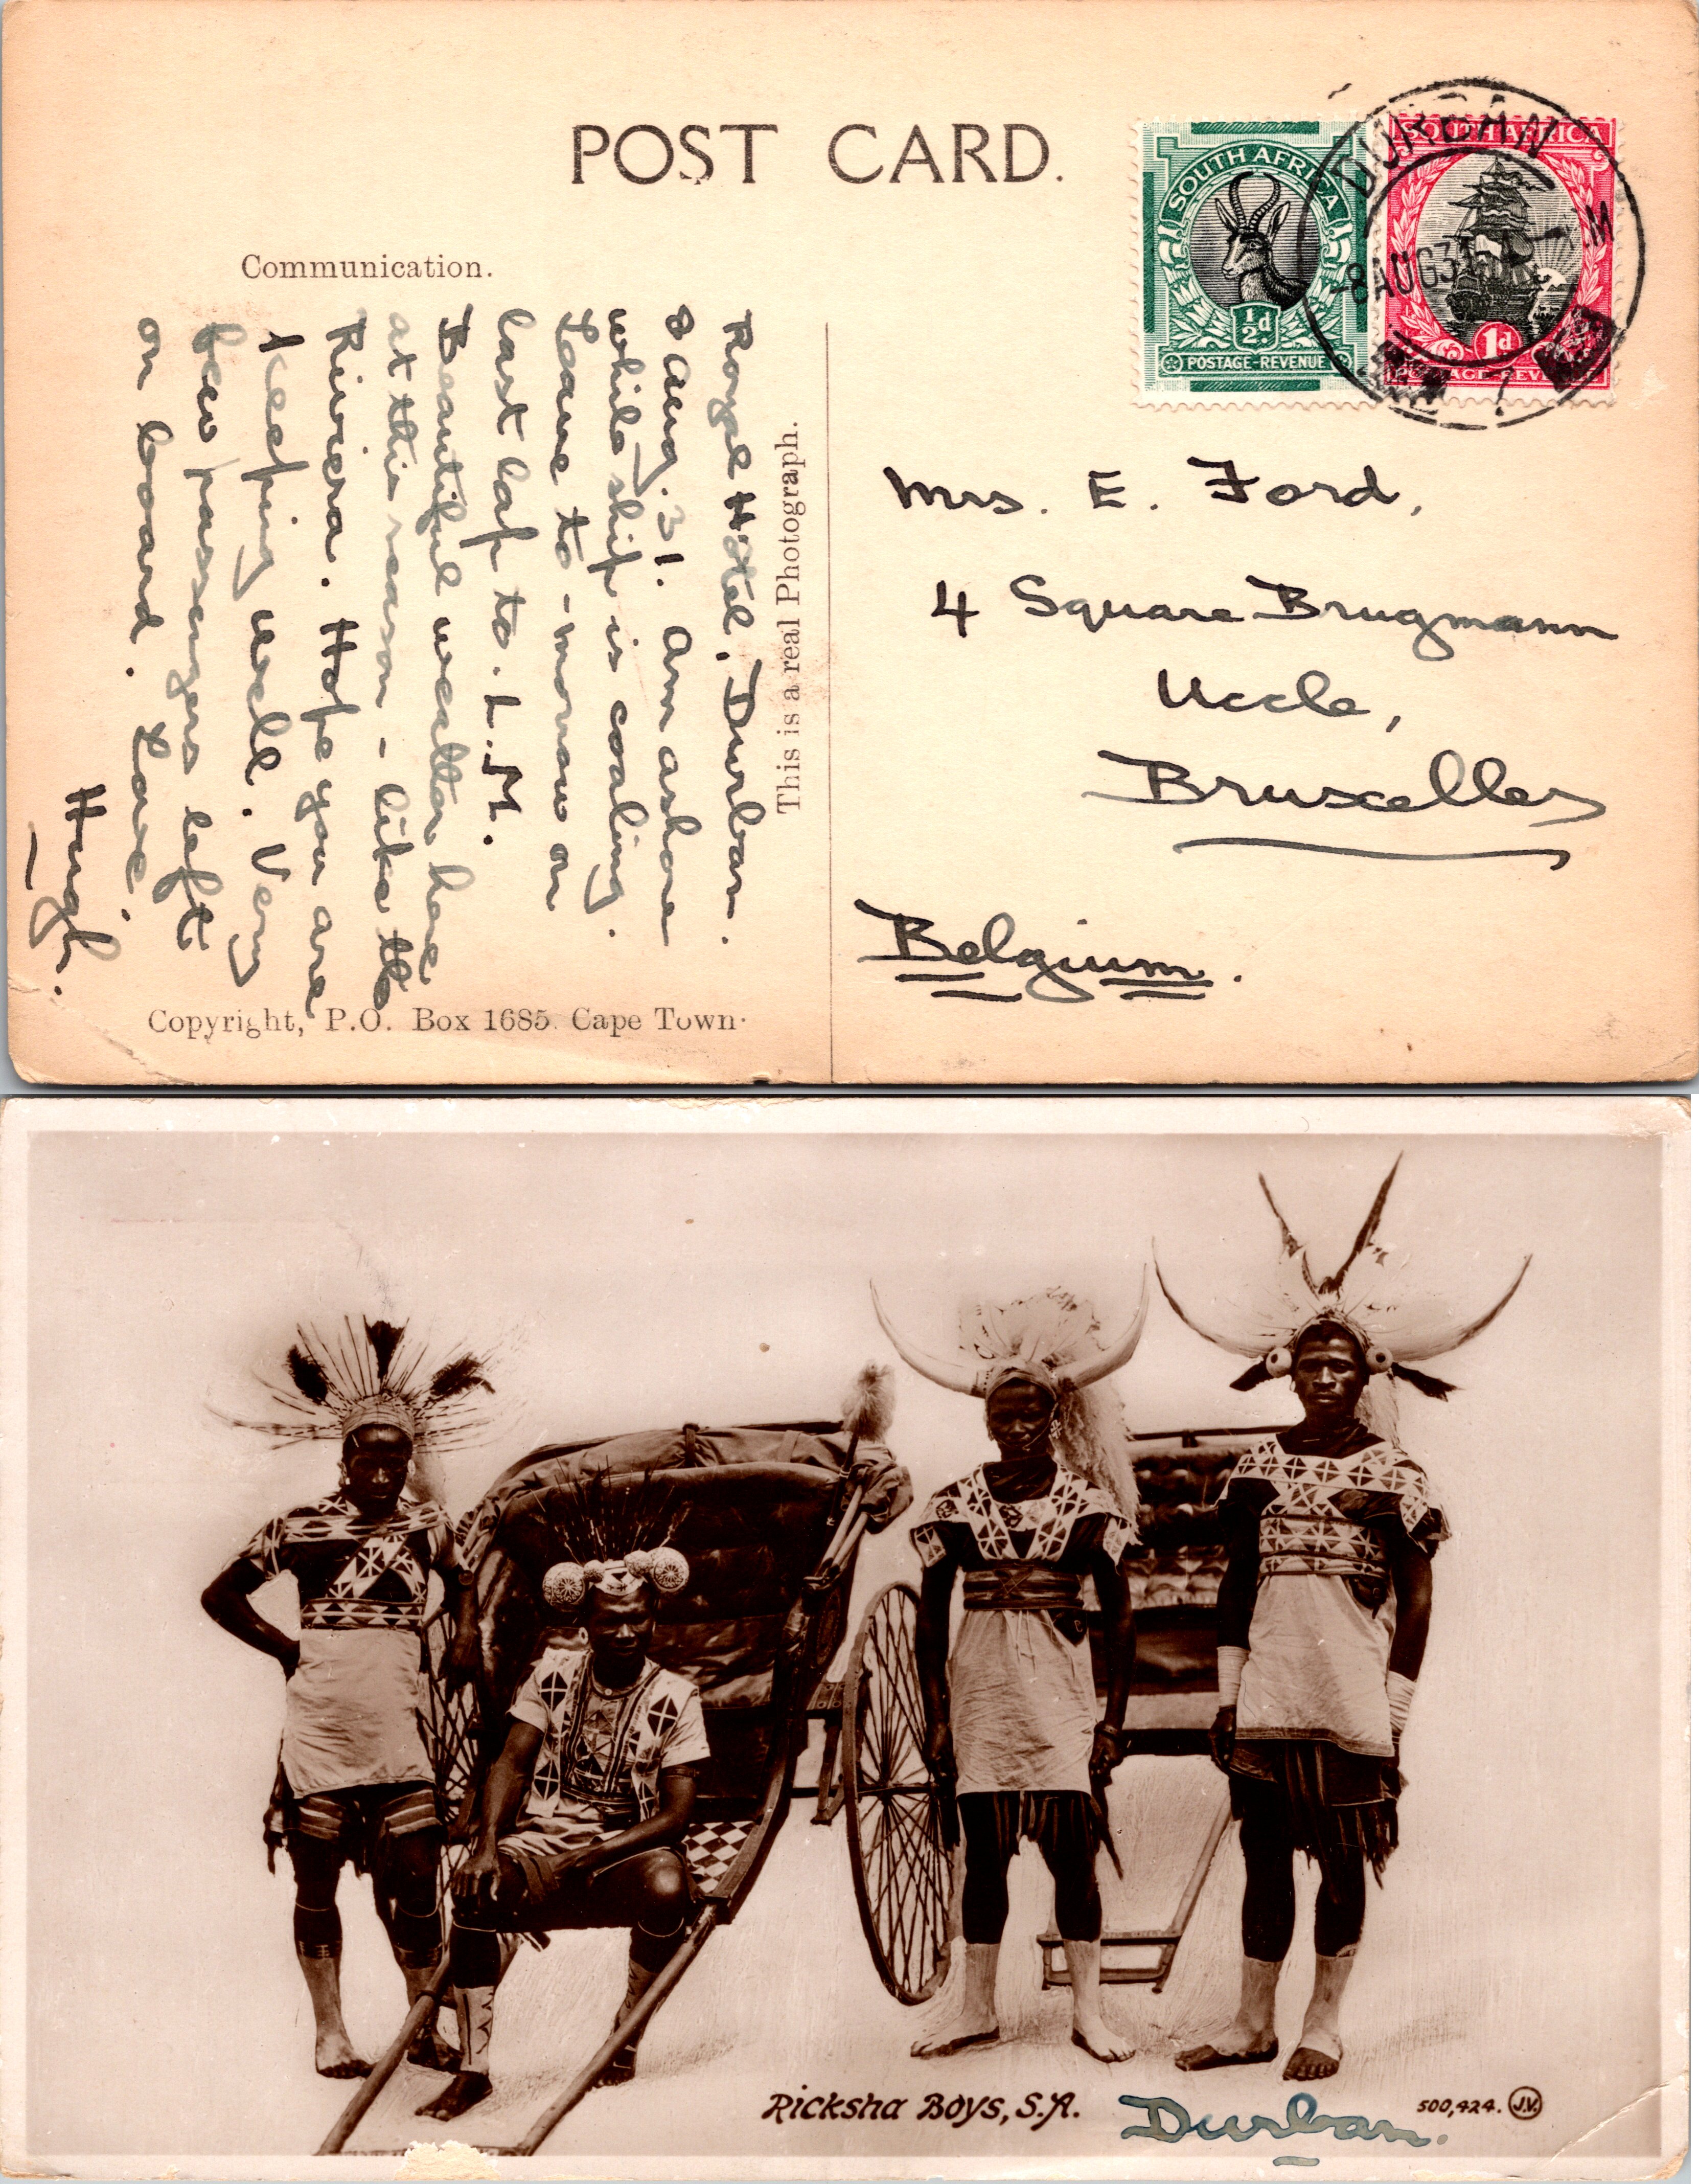 POST CARD.
SOUTH AFRICA
½d
POSTAGE-REVENUE
SOUTH AFRICA
1d
POSTAGE-REVENUE
DURBAN
-8 AUG 31
Communication.
Royal Hotel, Durban.
8 Aug. 31. Am ashore
while ship is coaling.
Leave to-morrow on
last lap to. L.M.
Beautiful weather here
at this season - like the
Riviera. Hope you are
keeping well. Very
few passengers left
on board. Love,
Hugh.
This is a real Photograph.
Mrs. E. Ford,
4 Square Brugmann
Uccle,
Bruxelles
Belgium.
Copyright, P.O. Box 1685. Cape Town.
Ricksha Boys, S.A.
Durban.
500,424. J.V.